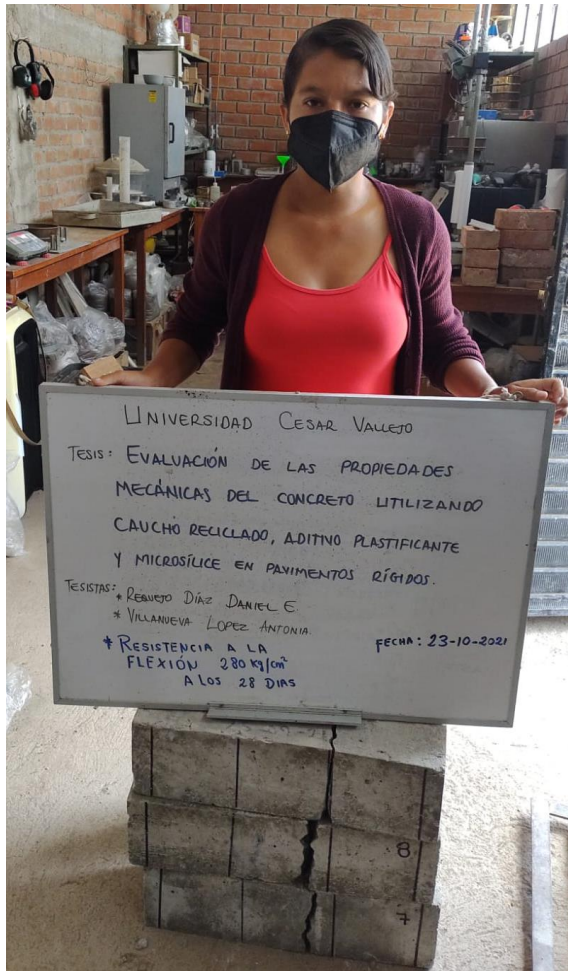 UNIVERSIDAD CESAR VALLEJO
TESIS: EVALUACIÓN DE LAS PROPIEDADES
MECÁNICAS DEL CONCRETO UTILIZANDO
CAUCHO RECICLADO, ADITIVO PLASTIFICANTE
Y MICROSÍLICE EN PAVIMENTOS RÍGIDOS.
TESISTAS:
* REQUEJO DÍAZ DANIEL E
* VILLANUEVA LOPEZ ANTONIA.
* RESISTENCIA A LA
FLEXIÓN 280 Kg/cm²
A LOS 28 DIAS
FECHA: 23-10-2021
8
7